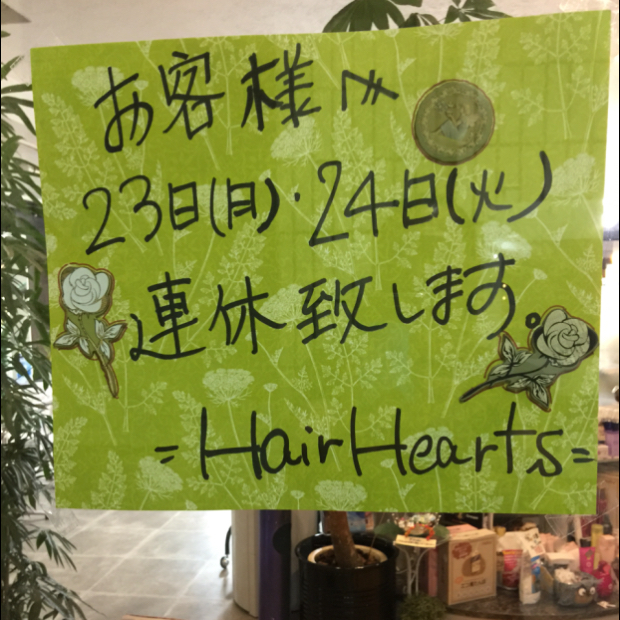 お客様へ
23日(月)・24日(火)
連休致します。
=HairHearts=